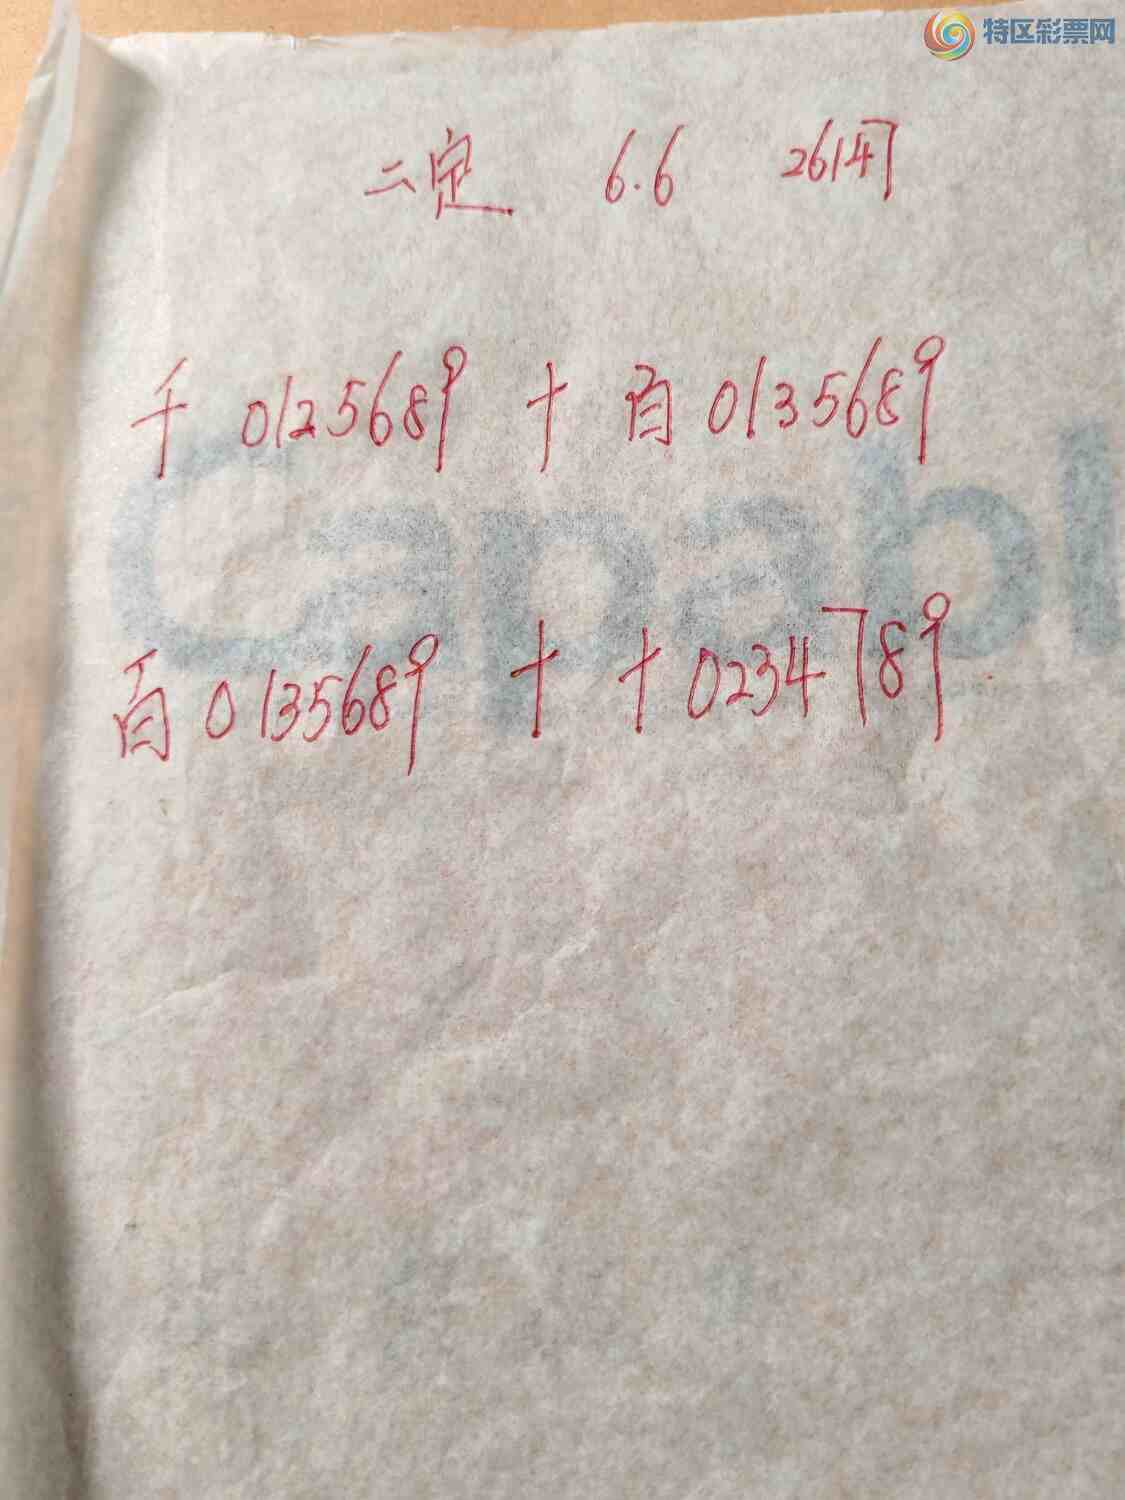 特区彩票网
二定 6.6 26147
千 0125689 + 百 0135689
百 0135689 + 十 0234789
Capabl